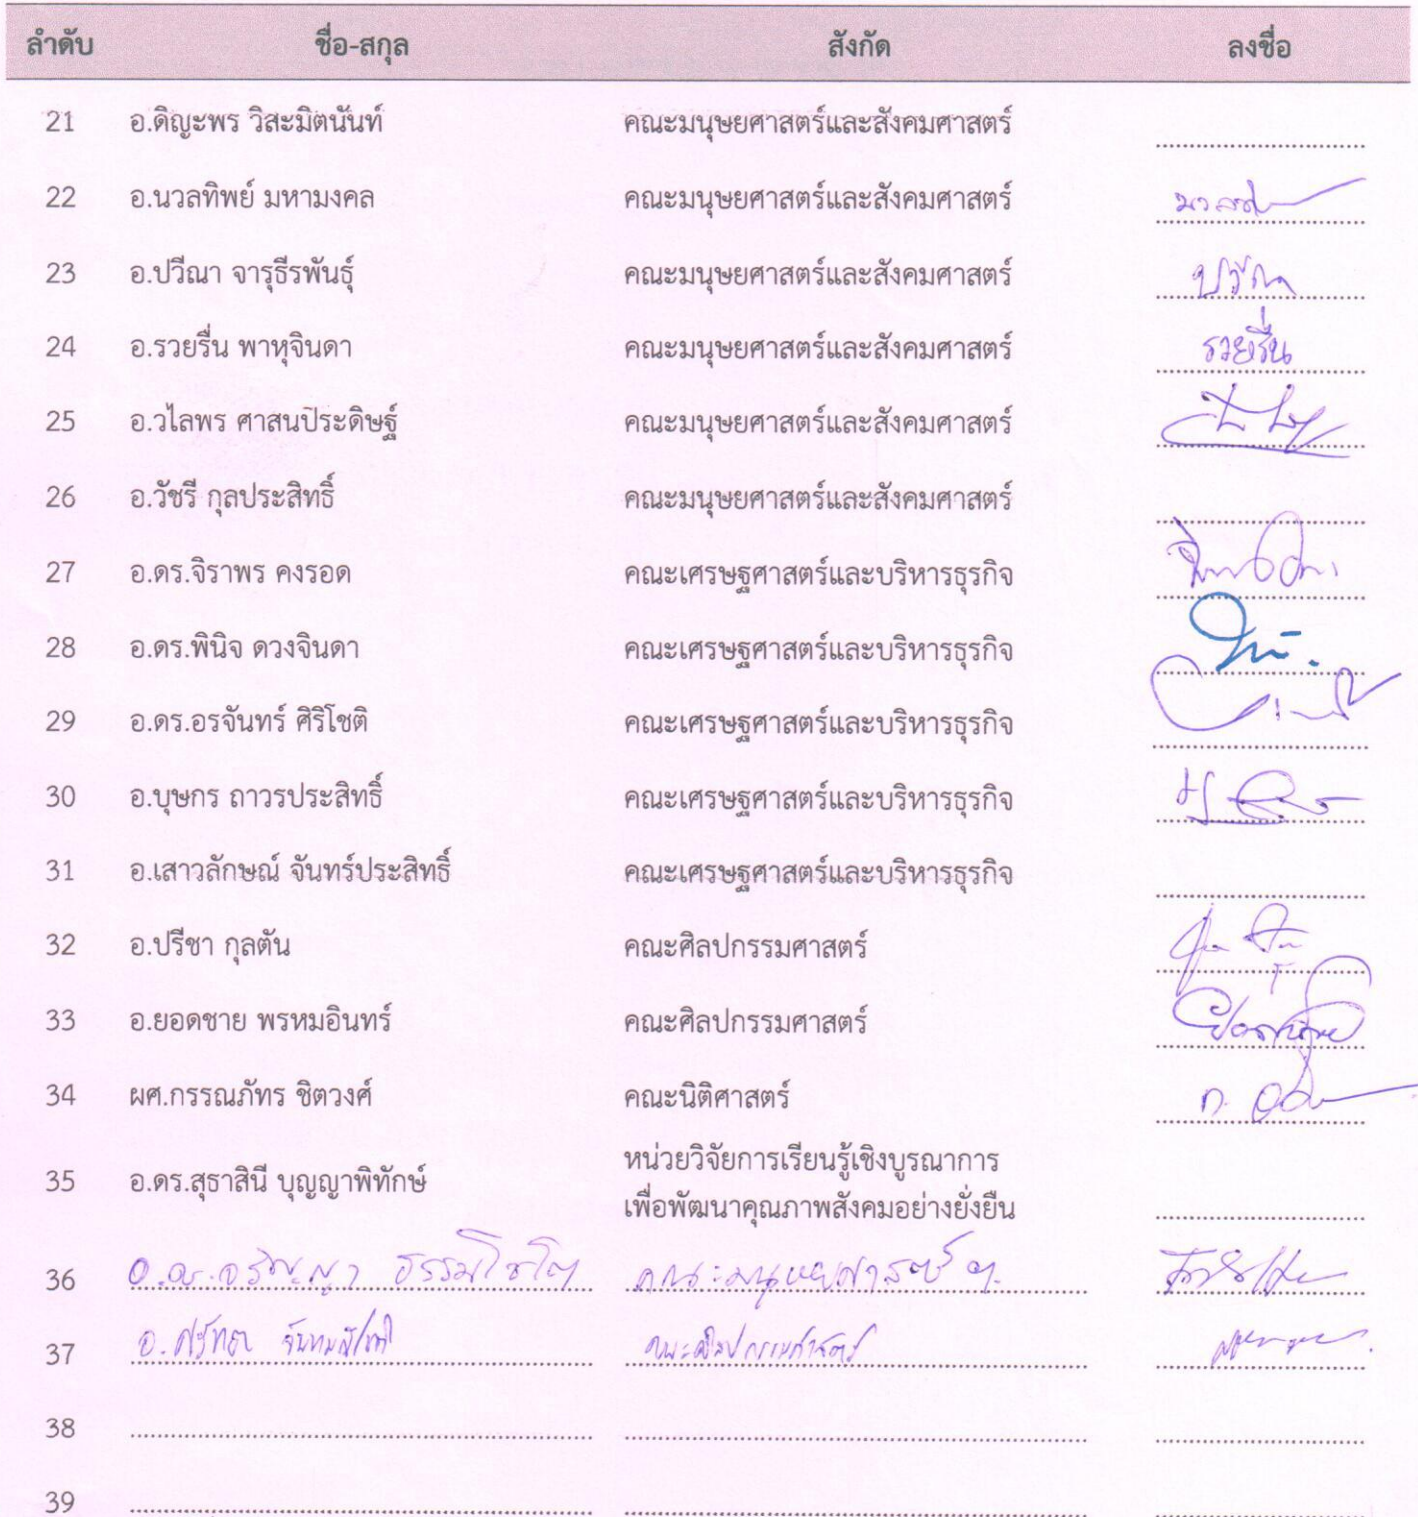 ลำดับ ชื่อ-สกุล สังกัด ลงชื่อ
21 อ.ดิญะพร วิสะมิตนันท์ คณะมนุษยศาสตร์และสังคมศาสตร์
22 อ.นวลทิพย์ มหามงคล คณะมนุษยศาสตร์และสังคมศาสตร์
23 อ.ปวีณา จารุธีรพันธุ์ คณะมนุษยศาสตร์และสังคมศาสตร์ ปวีณา
24 อ.รวยรื่น พาหุจินดา คณะมนุษยศาสตร์และสังคมศาสตร์ รวยรื่น
25 อ.วไลพร ศาสนประดิษฐ์ คณะมนุษยศาสตร์และสังคมศาสตร์
26 อ.วัชรี กุลประสิทธิ์ คณะมนุษยศาสตร์และสังคมศาสตร์
27 อ.ดร.จิราพร คงรอด คณะเศรษฐศาสตร์และบริหารธุรกิจ
28 อ.ดร.พินิจ ดวงจินดา คณะเศรษฐศาสตร์และบริหารธุรกิจ
29 อ.ดร.อรจันทร์ ศิริโชติ คณะเศรษฐศาสตร์และบริหารธุรกิจ
30 อ.บุษกร ถาวรประสิทธิ์ คณะเศรษฐศาสตร์และบริหารธุรกิจ
31 อ.เสาวลักษณ์ จันทร์ประสิทธิ์ คณะเศรษฐศาสตร์และบริหารธุรกิจ
32 อ.ปรีชา กุลตัน คณะศิลปกรรมศาสตร์
33 อ.ยอดชาย พรหมอินทร์ คณะศิลปกรรมศาสตร์ ยอดชาย
34 ผศ.กรรณภัทร ชิตวงศ์ คณะนิติศาสตร์
35 อ.ดร.สุธาสินี บุญญาพิทักษ์ หน่วยวิจัยการเรียนรู้เชิงบูรณาการ
เพื่อพัฒนาคุณภาพสังคมอย่างยั่งยืน
36 อ.ดร.จรัญญา ธรรมโชโต คณะมนุษยศาสตร์ ฯ
37 อ. คณะศิลปกรรมศาสตร์
38
39